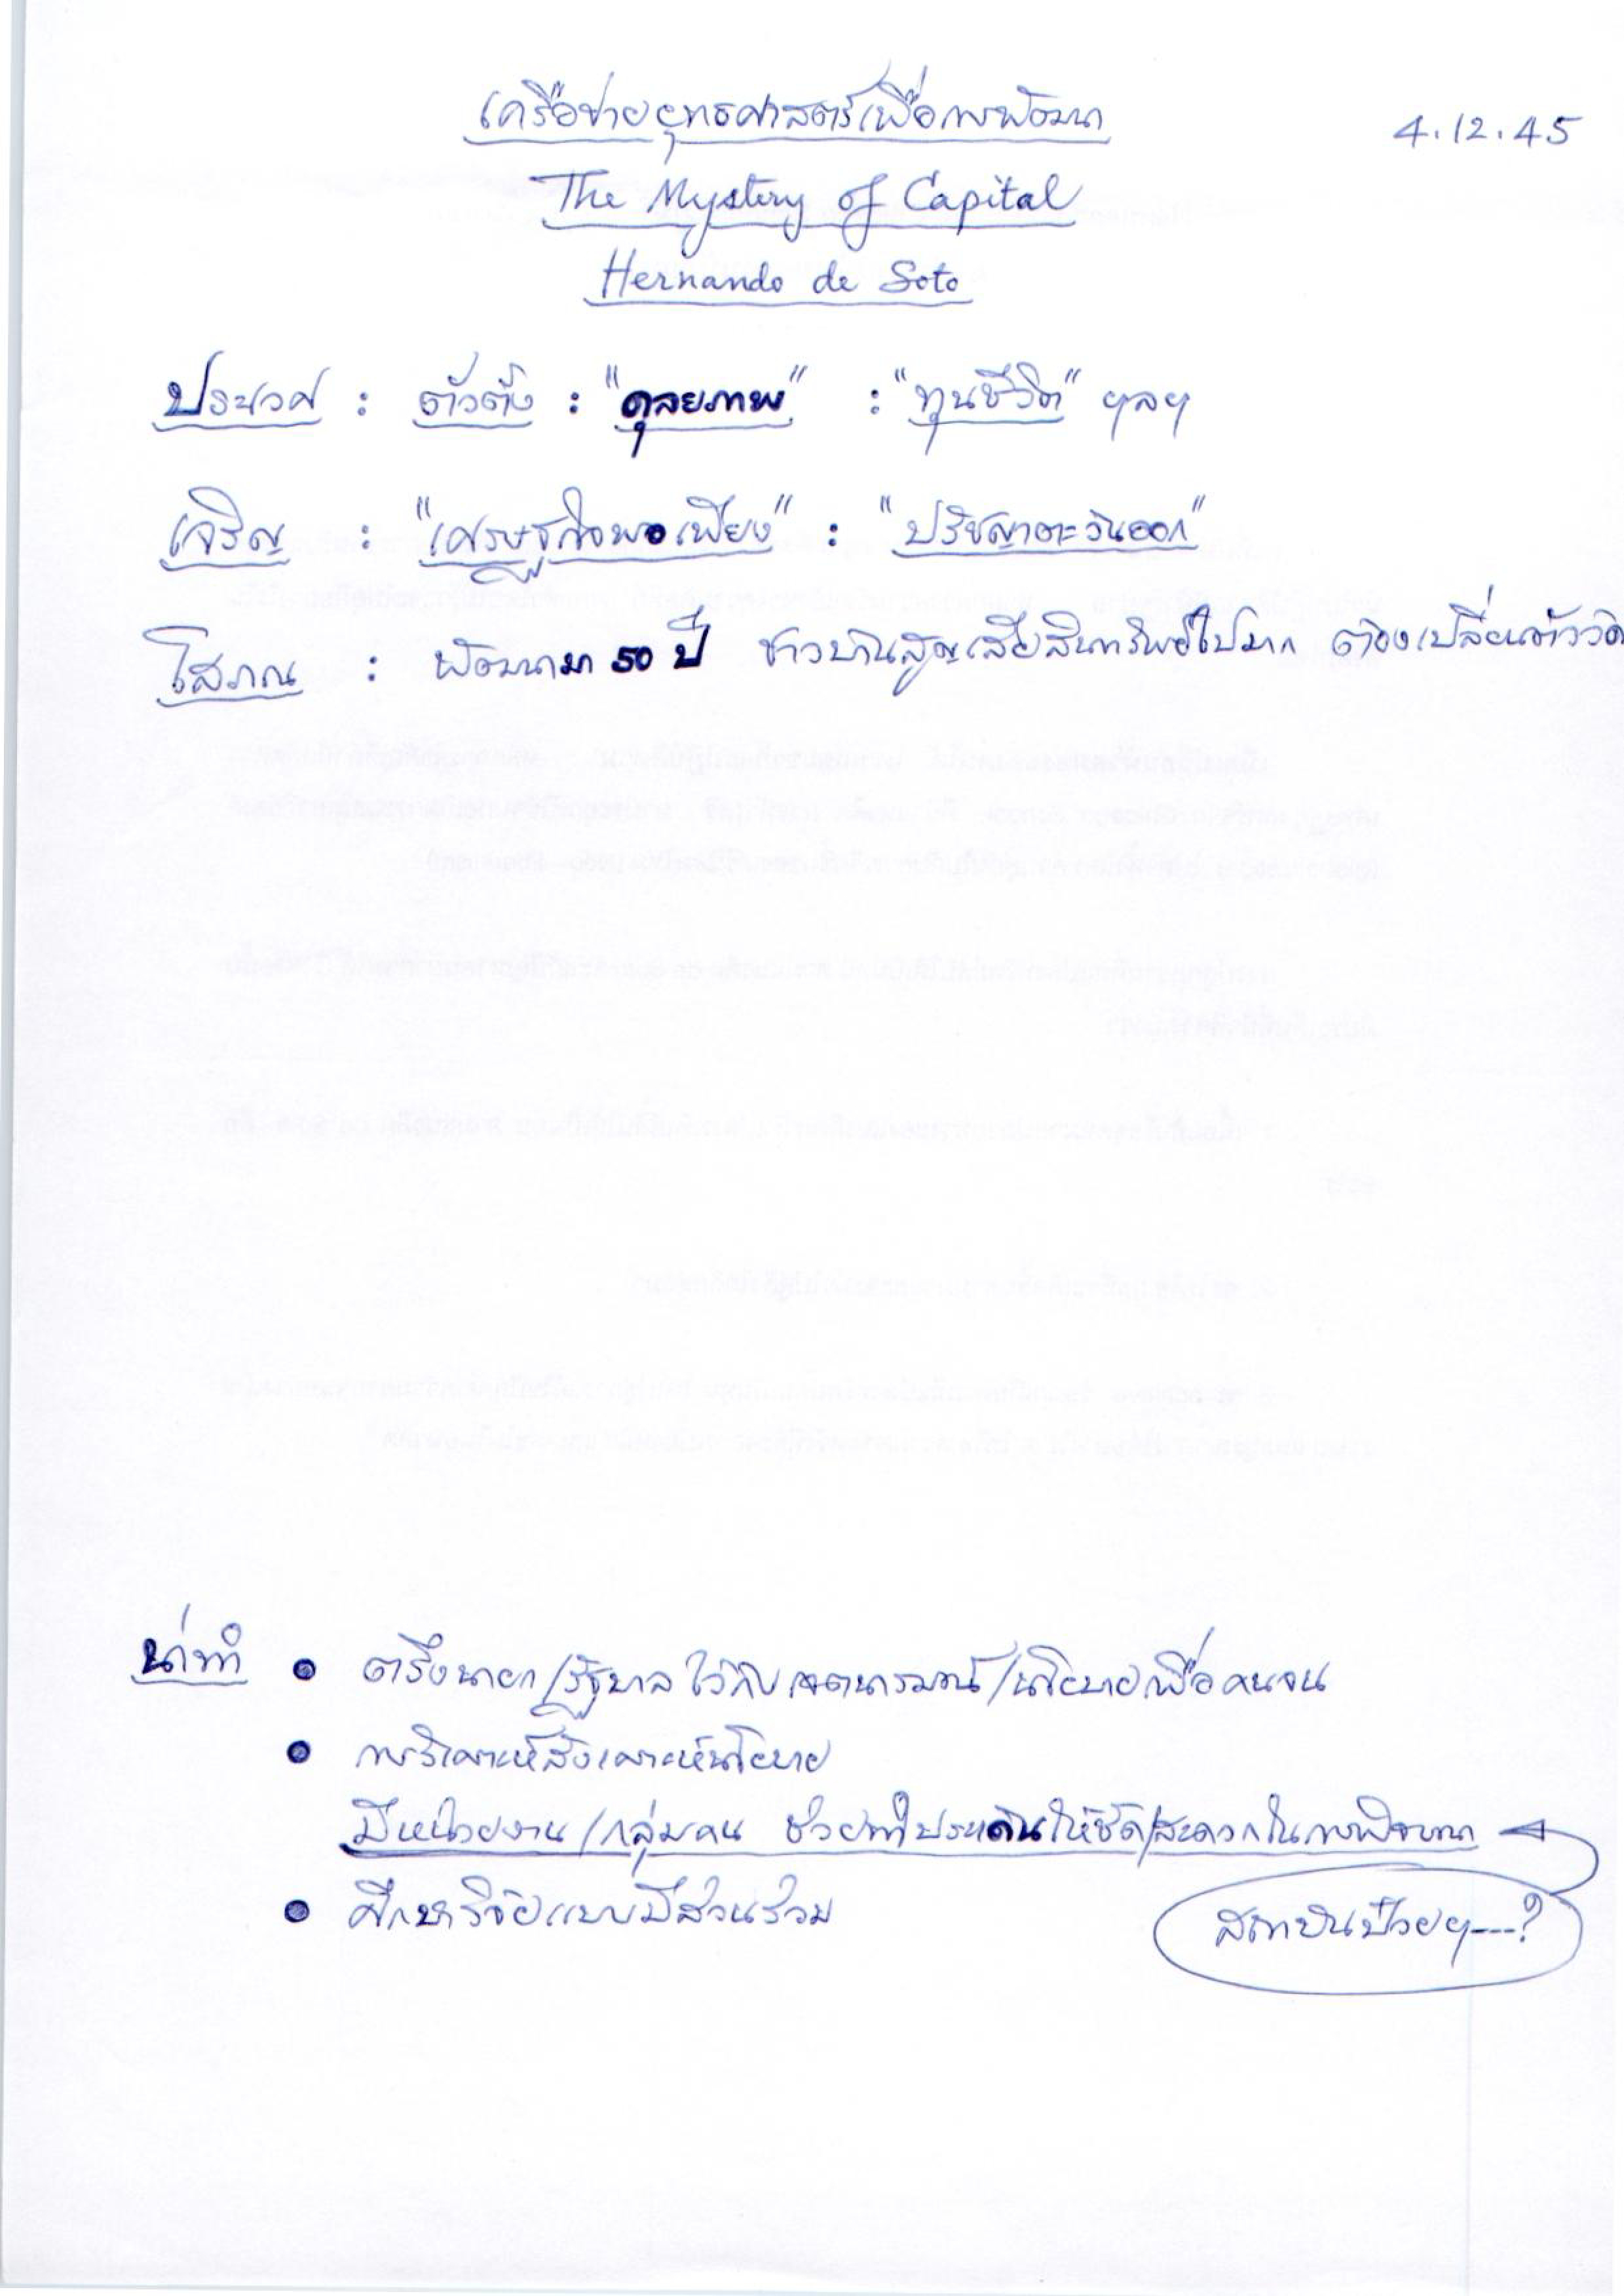 เครือข่ายยุทธศาสตร์เพื่อการพัฒนา 4.12.45
The Mystery of Capital
Hernando de Soto
ประเวศ : ตัวตั้ง : "ดุลยภาพ" : "ทุนชีวิต" ฯลฯ
เจริญ : "เศรษฐกิจพอเพียง" : "ปรัชญาตะวันออก"
โสภณ : พัฒนามา 50 ปี ชาวบ้านสูญเสียสินทรัพย์ไปมาก ต้องเปลี่ยนตัววัด
น่าทำ • ตรึงนายก/รัฐบาล ไว้กับเจตนารมณ์/นโยบายเพื่อคนจน
• การวิเคราะห์สังเคราะห์นโยบาย
มีหน่วยงาน/กลุ่มคน ช่วยทำประเด็นให้ชัด/สะดวกในการพิจารณา
• ศึกษาวิจัยแบบมีส่วนร่วม
สถาบันป๋วยฯ---?